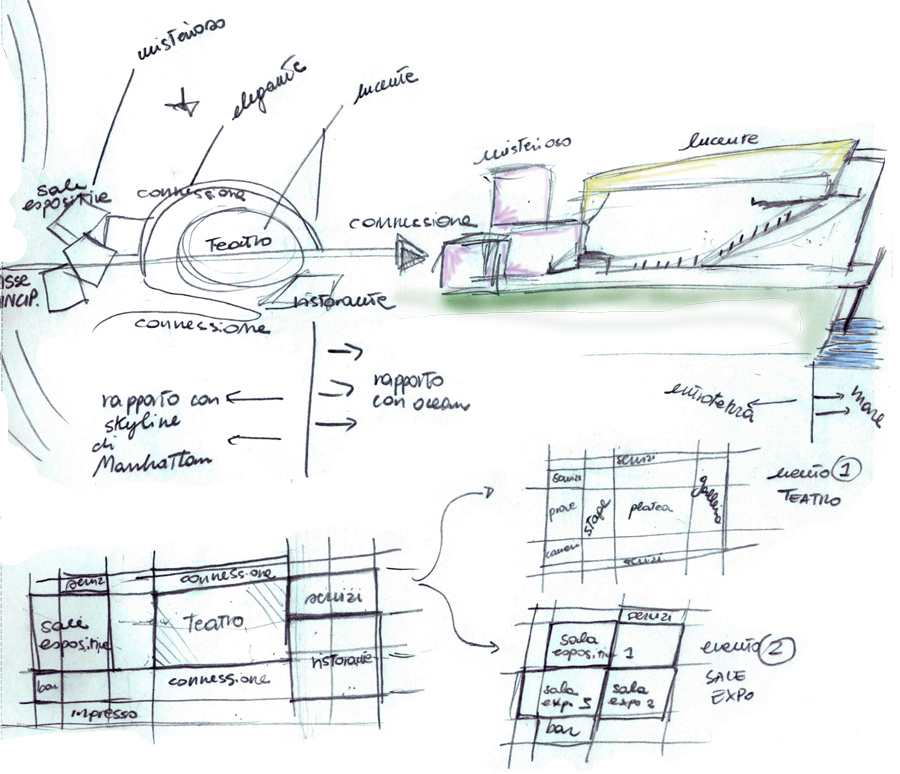 misterioso
elegante
lucente
sale
espositive
connessione
Teatro
connessione
ASSE
INCIP.
ristorante
connessione
misterioso
lucente
rapporto con
skyline
di
Manhattan
rapporto
con ocean
entroterra
mare
evento 1
TEATRO
servizi
servizi
prove
camerini
stage
platea
galleria
servizi
servizi
connessione
sale
espositive
Teatro
servizi
bar
connessione
ristorante
impresso
servizi
sala
espositiva 1
sala
expo 3
sala
expo 2
bar
evento 2
SALE
EXPO